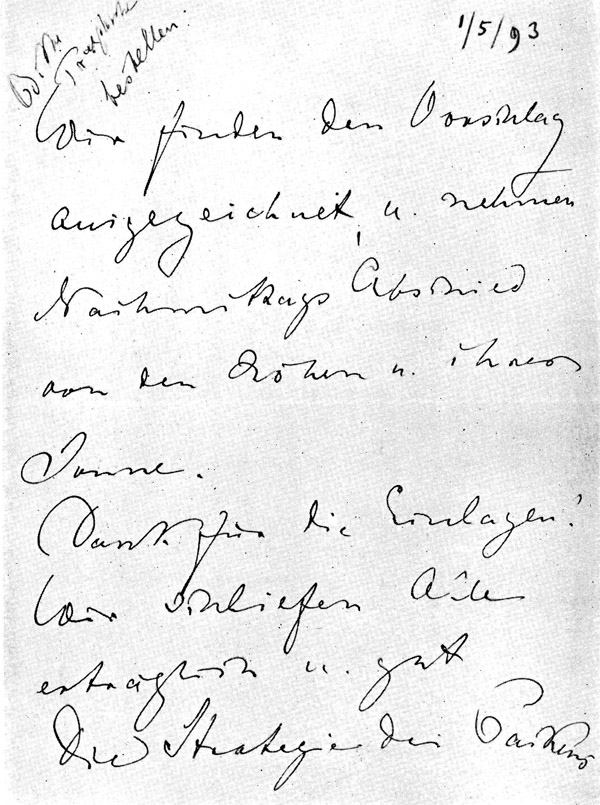 Bitte
Tragstuhl
bestellen!
1/5/93
Wir finden den Vorschlag
ausgezeichnet u. nehmen
Nachmittags Abschied
von den Höhen u. ihrer
Sonne.
Dank für die Einlagen!
Wir schliefen Alle
erträglich u. gut
Die Strategie des Packens